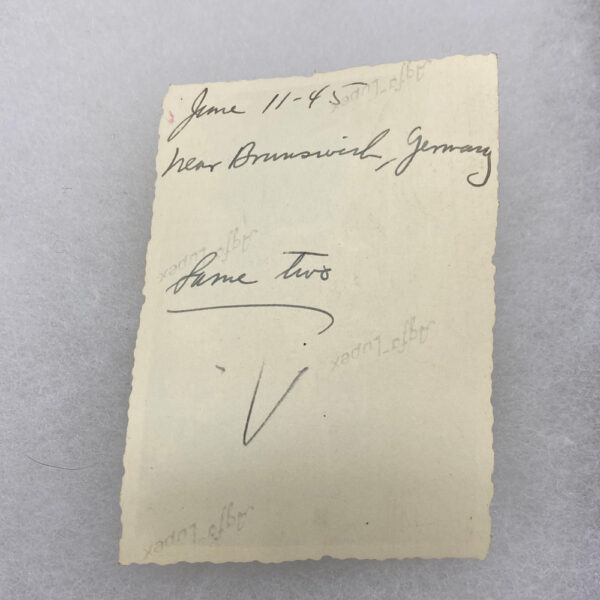 June 11-45
near Brunswick, Germany
Same two
Agfa-Lupex
Agfa-Lupex
Agfa-Lupex
Agfa-Lupex